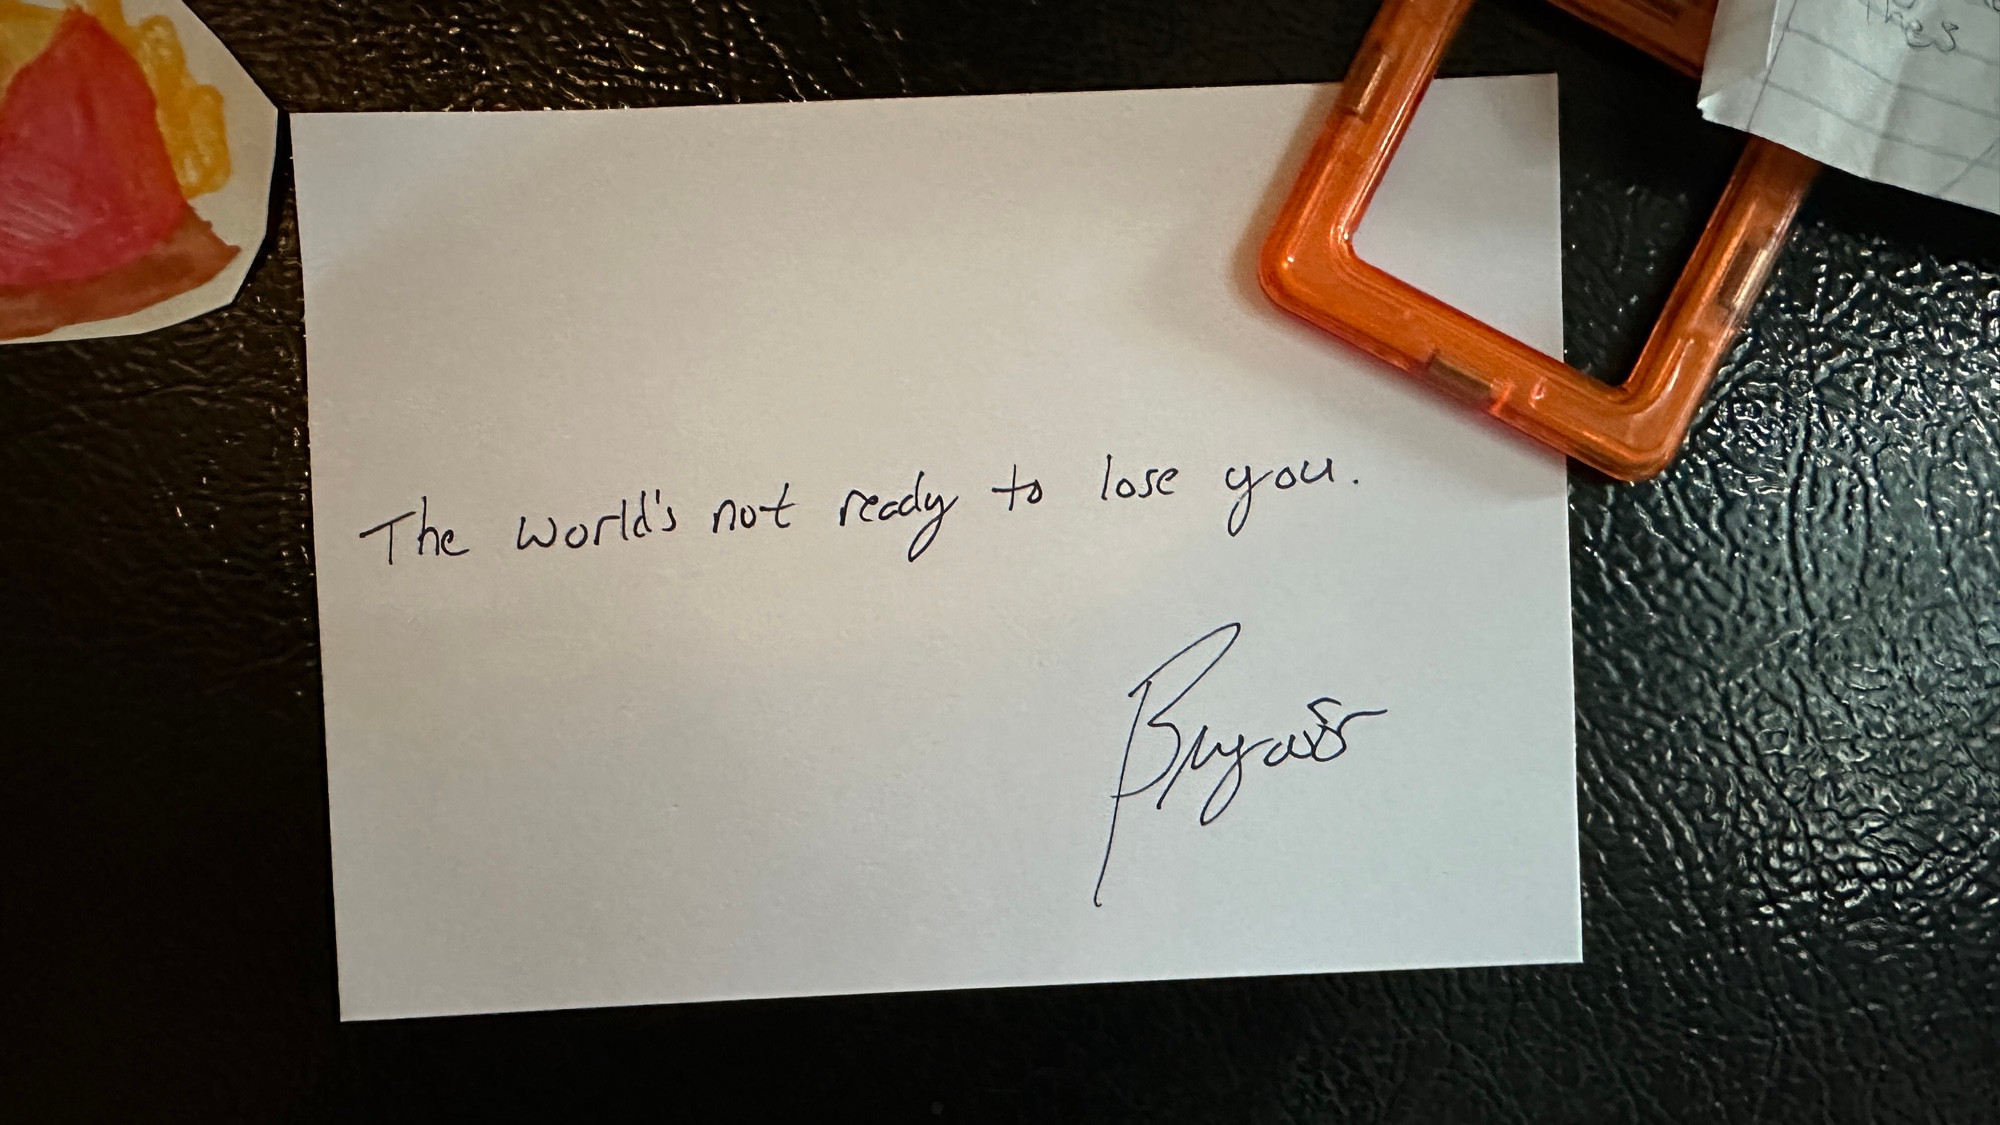 The world's not ready to lose you.